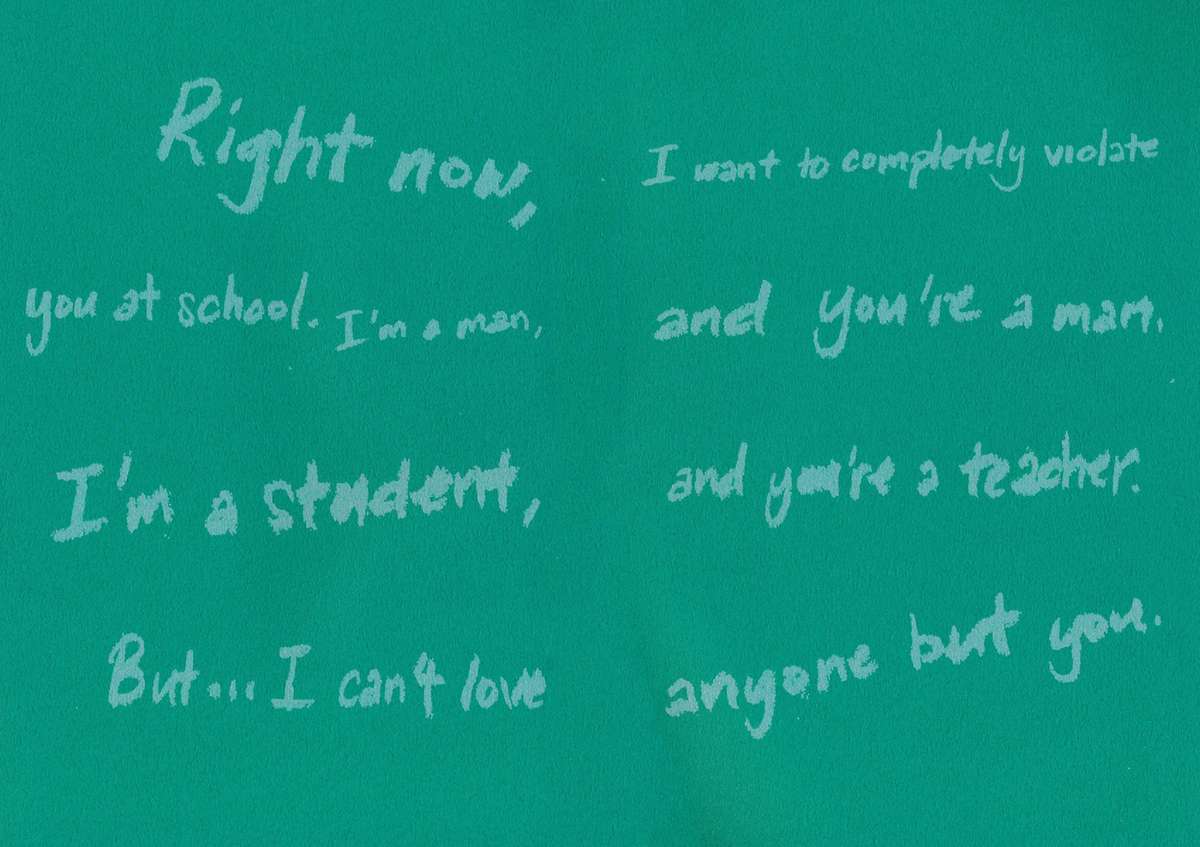 Right now, I want to completely violate
you at school. I'm a man, and you're a man.
I'm a student, and you're a teacher.
But... I can't love anyone but you.